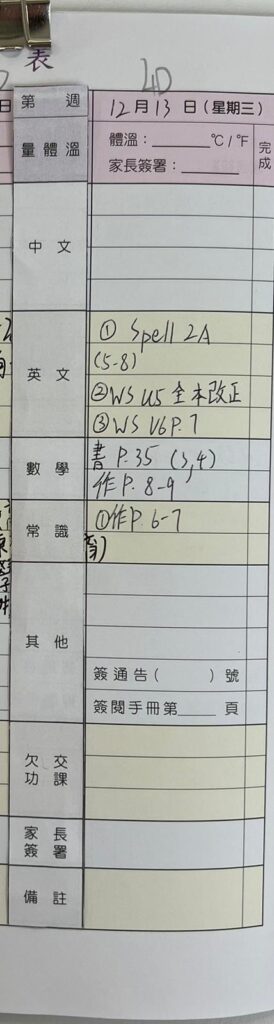 表
4D
第 週
12月13日(星期三)
量體溫
體溫:______℃/℉
家長簽署:______
完成
中文
英文
① Spell 2A
(5-8)
②WS U5 全本改正
③WS U6 P.7
數學
書 P.35 (3,4)
作P. 8-9
常識
①作P. 6-7
其他
簽通告( )號
簽閱手冊第____頁
欠交功課
家長簽署
備註